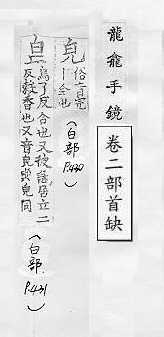 龍龕手鏡 卷二部首缺
皃 俗音
也 (白部 P.430)
皀 烏了反合也又彼居立二
反穀香也又音皃與皃同 (白部 P.431)